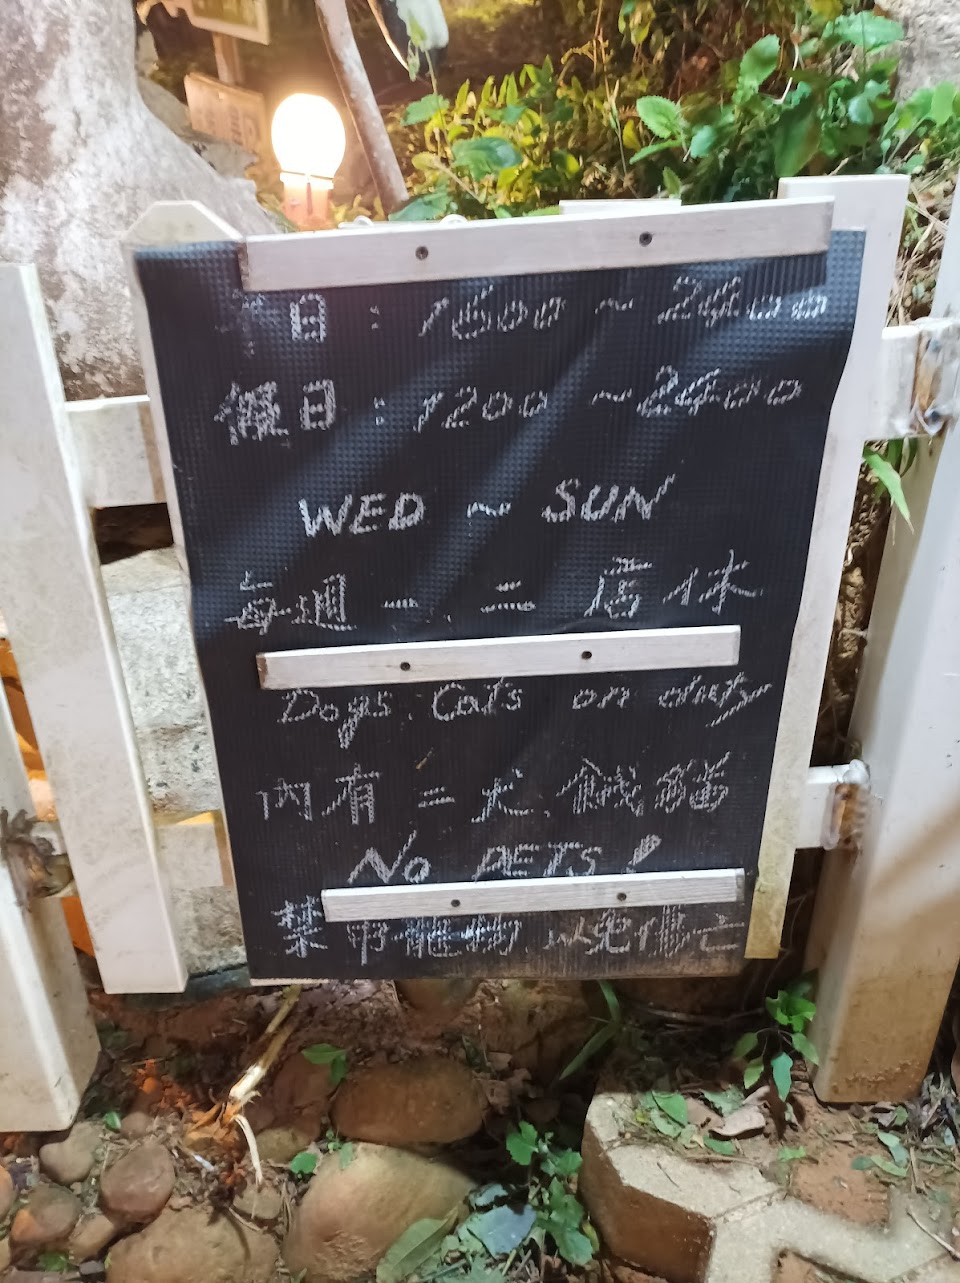 平日：1600 ~ 2400
假日：1200 ~ 2400
WED ~ SUN
每週一、二 店休
Dogs. Cats on duty
內有二犬.餓貓
No PETS!
禁帶寵物.以免傷亡